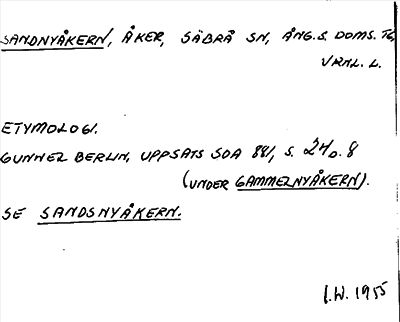 SANDNYÅKERN, ÅKER, SÄBRÅ SN, ÅNG.S. DOMS. TG,
VRNL. L.
ETYMOLOGI.
GUNNEL BERLIN, UPPSATS SOA 881, S. 24 o. 8
(UNDER GAMMELNYÅKERN).
SE SANDSNYÅKERN.
I.W. 1955